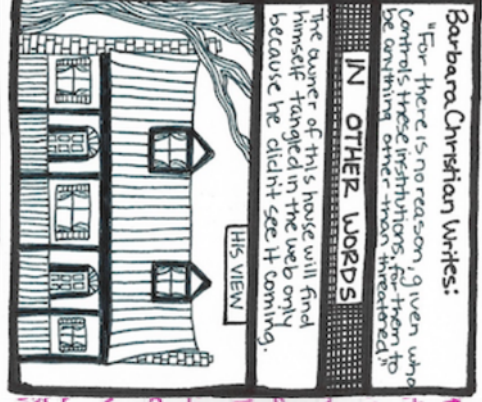 Barbara Christian Writes:
"For there is no reason, given who
controls these institutions, for them to
be anything other than threatened."
IN OTHER WORDS
The owner of this house will find
himself tangled in the web only
because he didn't see it coming.
HIS VIEW